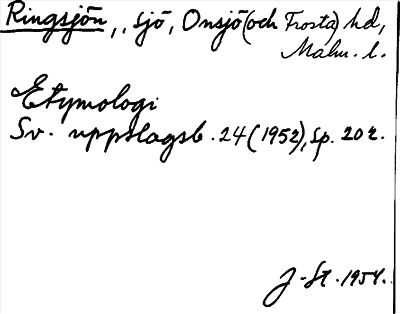 Ringsjön, , sjö, Onsjö (och Frosta) hd,
Malm. l.
Etymologi
Sv. uppslagsb. 24 (1952), sp. 202.
J-St. 1954.